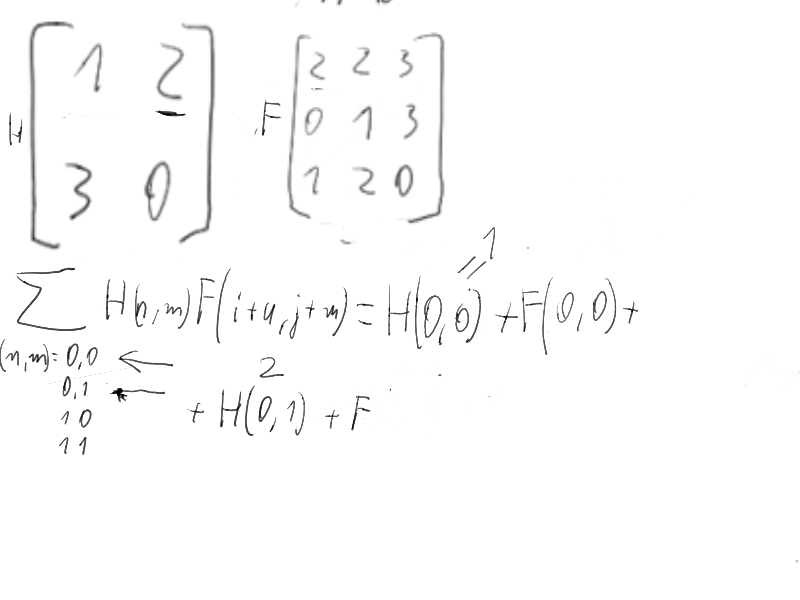 H [ 1 2 ; 3 0 ] F [ 2 2 3 ; 0 1 3 ; 1 2 0 ]
1
∑ H(n,m)F(i+n,j+m) = H(0,0) + F(0,0) +
(n,m)= 0,0 ←
2
0,1 ← + H(0,1) + F
1 0
1 1